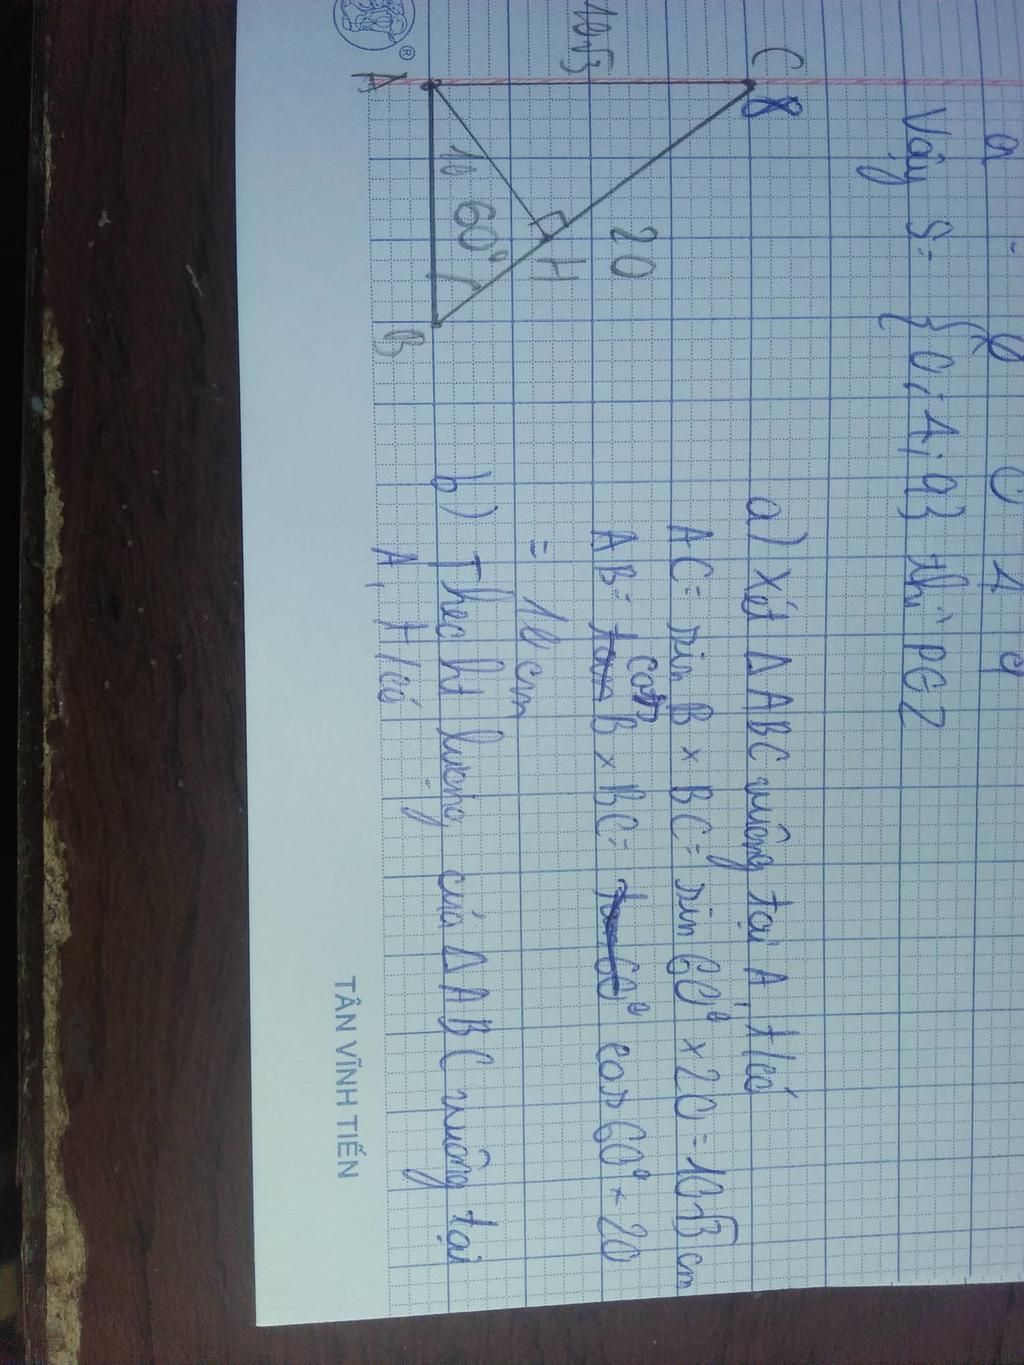 a 0 1 9
Vậy S= {0; 1; 9} thì P∈Z
C
10√3
20
A
10
60°
H
B
a) Xét Δ ABC vuông tại A, t/có
AC= sin B × BC= sin 60° × 20 = 10√3 cm
AB= cos B × BC= cos 60° × 20
= 10 cm
b) Theo ht lượng của Δ ABC vuông tại
A, t/có
®
TÂN VĨNH TIẾN